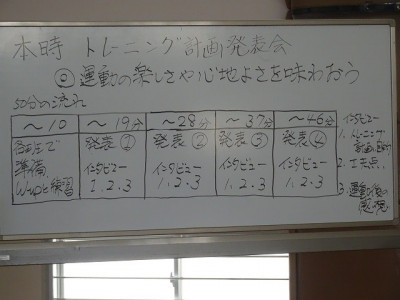 本時 トレーニング計画発表会
◎運動の楽しさや心地よさを味わおう
50分の流れ
～10 ～19分 ～28分 ～37分 ～46分
発表① 発表② 発表③ 発表④
準備、 インタビュー インタビュー インタビュー インタビュー
W-upと練習 1.2.3 1.2.3 1.2.3 1.2.3
インタビュー
1.トレーニング
計画
2.工夫点
3.運動後の
感想